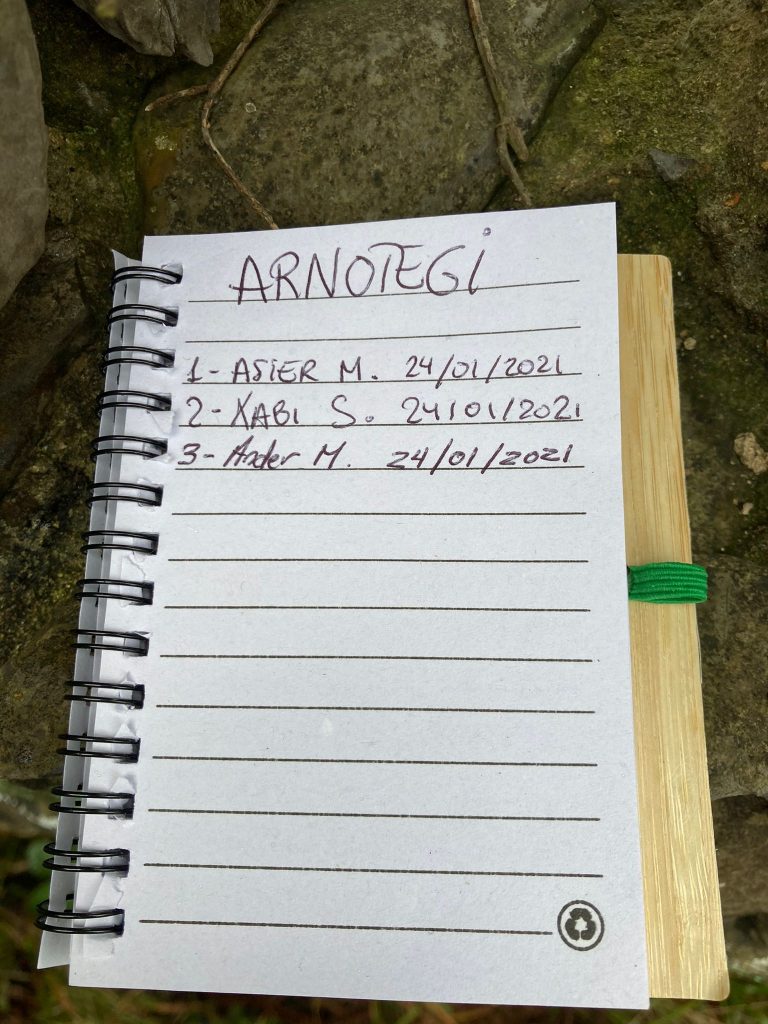 ARNOTEGi
1- ASiER M. 24/01/2021
2- XABI S. 24/01/2021
3- Ander M. 24/01/2021